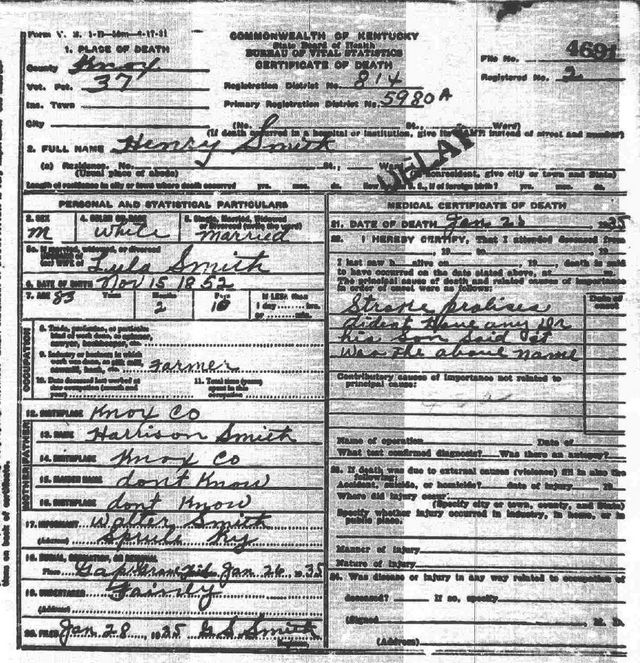 Form V. S. 1-B
COMMONWEALTH OF KENTUCKY
State Board of Health
BUREAU OF VITAL STATISTICS
CERTIFICATE OF DEATH
1. PLACE OF DEATH
County Knox
Vot. Pct. 37
Inc. Town
City (No. St., Ward)
Registration District No. 814
Primary Registration District No. 5980A
File No. 4691
Registered No. 2
(If death occurred in a hospital or institution, give its NAME instead of street and number)
2. FULL NAME Henry Smith
(a) Residence. No. St., Ward
(Usual place of abode) nonresident, give city or town and State)
DELAY
Length of residence in city or town where death occurred yrs. mos. ds. How U. S., if of foreign birth? yrs. mos. ds.
PERSONAL AND STATISTICAL PARTICULARS
3. SEX M
4. COLOR OR RACE White
5. Single, Married, Widowed or Divorced (write the word) Married
5a. If married, widowed, or divorced
(or) WIFE of Lula Smith
6. DATE OF BIRTH Nov 15 1852
7. AGE 83 Years Months 2 Days 10 If LESS than 1 day hrs. or min.
OCCUPATION
8. Trade, profession, or particular kind of work done, as spinner, sawyer, bookkeeper, etc.
9. Industry or business in which work was done, as silk mill, sawmill, bank, etc. Farmer
10. Date deceased last worked at this occupation (month and year)
11. Total time (years) spent in this occupation
12. BIRTHPLACE Knox Co
FATHER
13. NAME Harrison Smith
14. BIRTHPLACE Knox Co
MOTHER
15. MAIDEN NAME dont Know
16. BIRTHPLACE dont Know
17. INFORMANT Walter Smith
(Address) Sprule Ky
18. BURIAL, CREMATION, OR REMOVAL
Place Gap Jan 26 1935
19. UNDERTAKER Family
(Address)
20. FILED Jan 28 1935 G S Smith
MEDICAL CERTIFICATE OF DEATH
21. DATE OF DEATH Jan 26 1935
22. I HEREBY CERTIFY, That I attended deceased from
19 to 19
I last saw h alive on 19 death is said
to have occurred on the date stated above, at m.
The principal cause of death and related causes of importance in order of onset were as follows:
Date of onset
Stroke pralises
dident have any Dr
his Son Said it
was the above name
Contributory causes of importance not related to principal cause:
Name of operation Date of
What test confirmed diagnosis? Was there an autopsy?
23. If death was due to external causes (violence) fill in also the following:
Accident, suicide, or homicide? date of injury 19
Where did injury occur
(Specify city or town, county, and State)
Specify whether injury occurred in industry, in home, or in public place.
Manner of injury
Nature of injury
24. Was disease or injury in any way related to occupation of
deceased? If so, specify
(Signed) M. D.
(Address)